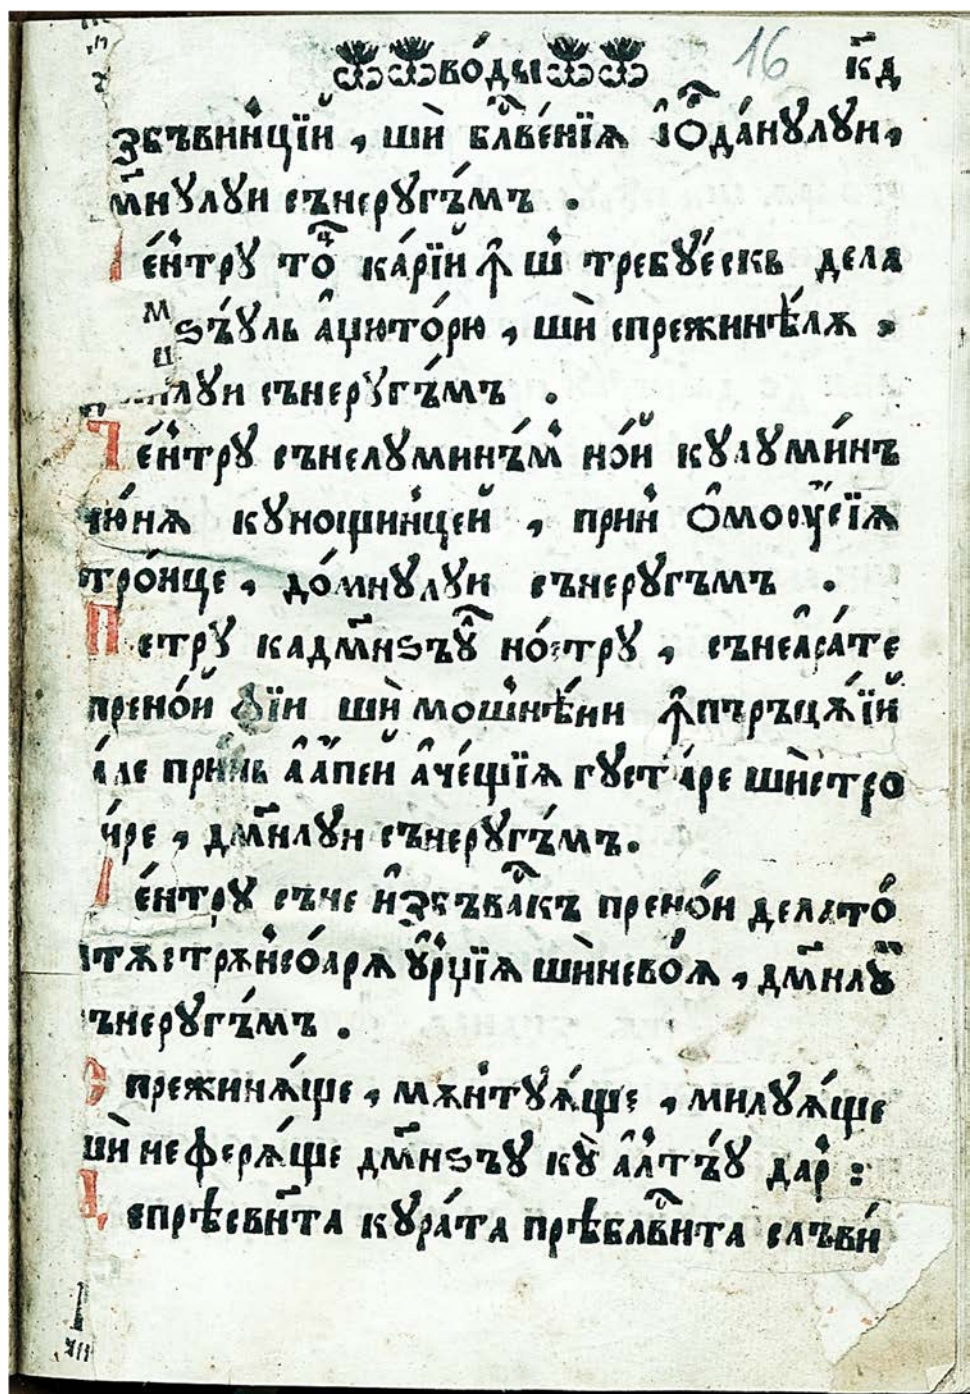 во́ды 16 к҃д
ꙁбъвин҆ці́й , шѝ бл҃ве́нїѧ і҆ѻ҆҃да́нꙋлꙋи,
м҃нꙋлꙋи сънеругъ́мъ .
е́н҆трꙋ то҃ц ка́рїй ꙟ ш҆ требꙋе́скь дела
ѕъ́ꙋль а҆џюто́рю , шѝ спрежинѣ́лѫ ,
лꙋи сънерꙋгъ́мъ .
Пе́н҆трꙋ сънелꙋминъ́м҆ но́й кꙋлꙋми́нъ
чю́нѧ кꙋнощин҆цей , прин҆ ѻ҆моѹсїѧ
тро́ице , до́мнꙋлꙋи сънерꙋгъмъ .
П етрꙋ кадм҃нѕъꙋ҃ но́стрꙋ , сънеа҆са́те
прено́й фїи шѝ мош҆нѣ́ни ꙟпъръцѫ́їй
а́ле при́нь а҆ а҆́пей а҆че́щїѧ гꙋста́ре шѝстро
и́ре , дм҃нлꙋи сънерꙋгъ́мъ.
е́нтрꙋ съче и҆ꙁбъва́скъ прено́и делато҃
тѫстрѫн҆со́арѧ ꙋ҆р҆џїѧ шѝнево́ѧ , дм҃нлꙋ
ънерꙋгъ́мъ .
С прежинѧ́ще , мѫн҆тꙋѧ́ще , милꙋѧ́ще
шѝ не ферѧ́ще дм҃нѕъꙋ кꙋ̀ а҆л҆тъ́ꙋ дар҆ :
спрѣсви҃нта кꙋра́та прѣблв҃и́нта слъви́